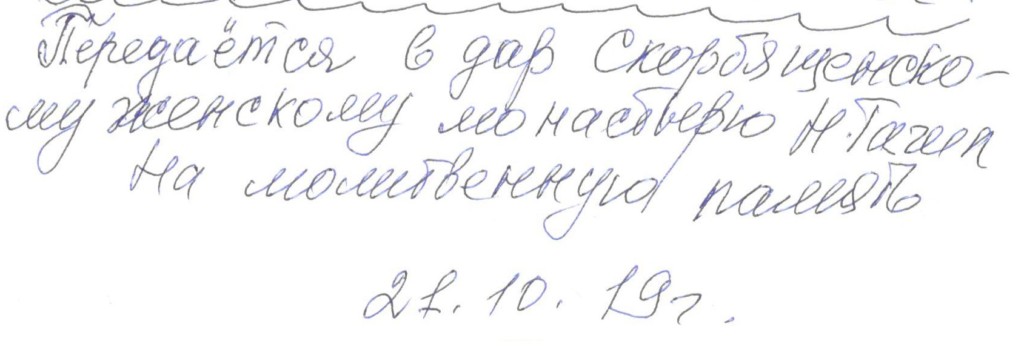 Передаётся в дар Скорбященско-
му женскому монастырю Н.Тагил
На молитвенную память
21.10.19г.